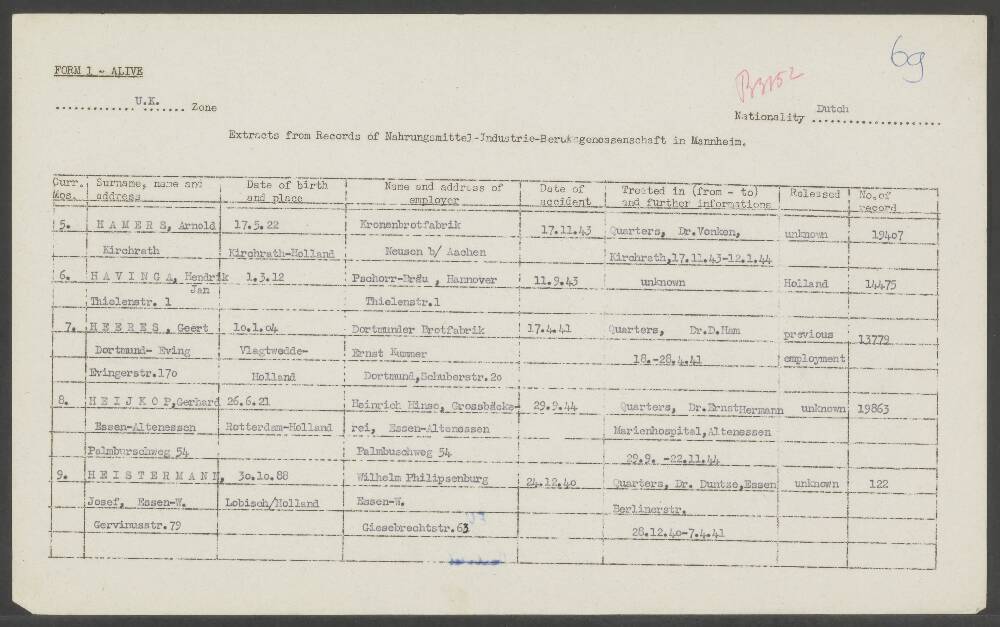 69
B3152
FORM 1 - ALIVE
U.K. Zone
Nationality Dutch
Extracts from Records of Nahrungsmittel-Industrie-Berufsgenossenschaft in Mannheim.
Curr. Nos. | Surname, name and address | Date of birth and place | Name and address of employer | Date of accident | Treated in (from - to) and further informations | Released | No. of record
5. H A M E R S, Arnold 17.5.22 Kronenbrotfabrik 17.11.43 Quarters, Dr.Vonken, unknown 19407
Kirchrath Kirchrath-Holland Neusen b/ Aachen Kirchrath,17.11.43-12.1.44
6. H A V I N G A, Hendrik 1.3.12 Pschorr-Bräu , Hannover 11.9.43 unknown Holland 14475
Jan
Thielenstr. 1 Thielenstr.1
7. H E E R E S , Geert 10.1.04 Dortmunder Brotfabrik 17.4.41 Quarters, Dr.D.Ham previous 13779
Dortmund- Eving Vlagtwedde- Ernst Kummer 18.-28.4.41 employment
Evingerstr.170 Holland Dortmund,Schuberstr.20
8. H E I J K O P,Gerhard 26.6.21 Heinrich Hinse, Grossbäcke- 29.9.44 Quarters, Dr.ErnstHermann unknown 19863
Essen-Altenessen Rotterdam-Holland rei, Essen-Altenessen Marienhospital,Altenessen
Palmburschweg 54 Palmbuschweg 54 29.9. -22.11.44
9. H E I S T E R M A N N, 30.10.88 Wilhelm Philipsenburg 24.12.40 Quarters, Dr. Duntze,Essen unknown 122
Josef, Essen-W. Lobisch/Holland Essen-W. Berlinerstr.
Gervinusstr.79 Giesebrechtstr.63 28.12.40-7.4.41